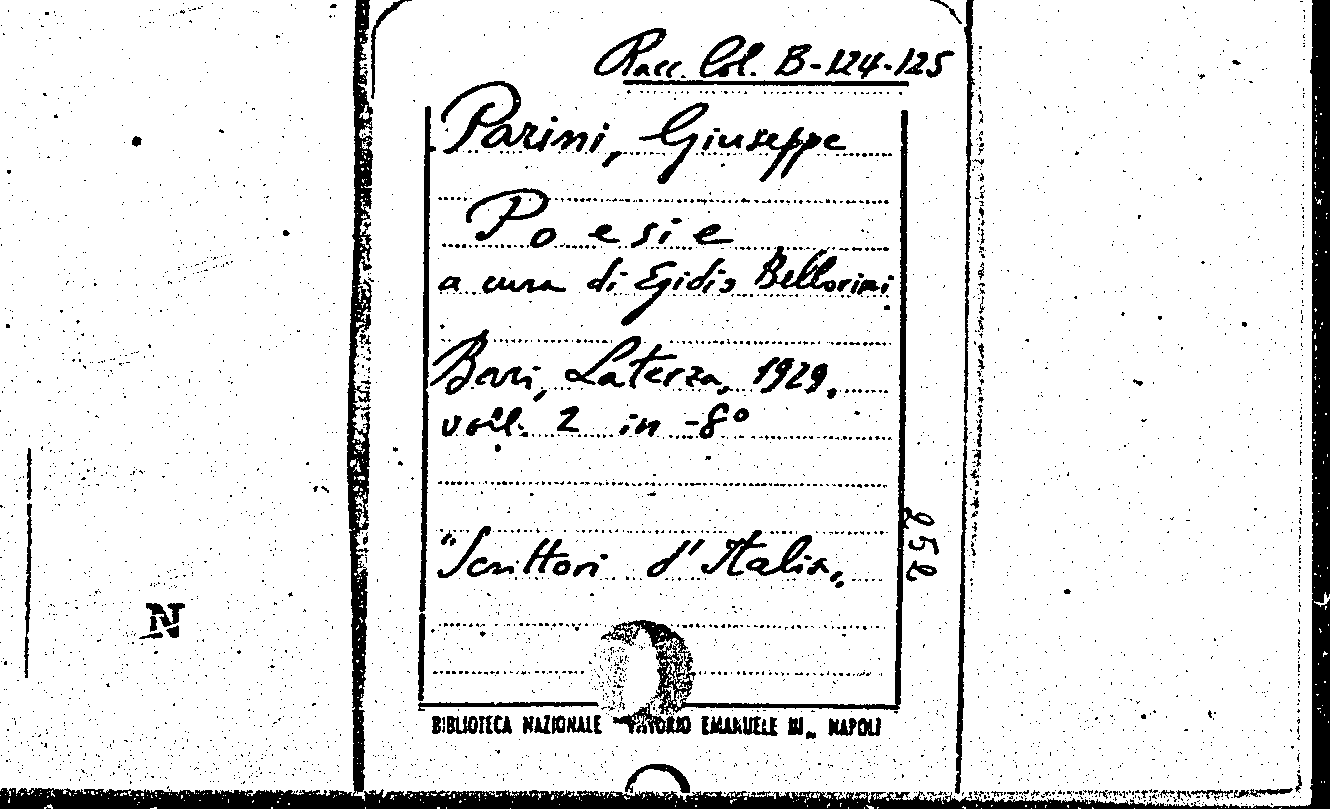 Racc. Col. B-124-125
Parini, Giuseppe
Poesie
a cura di Egidio Bellorini
Bari, Laterza, 1929.
voll. 2 in -8°
"Scrittori d'Italia„
252
N
BIBLIOTECA NAZIONALE "VITTORIO EMANUELE III„ NAPOLI